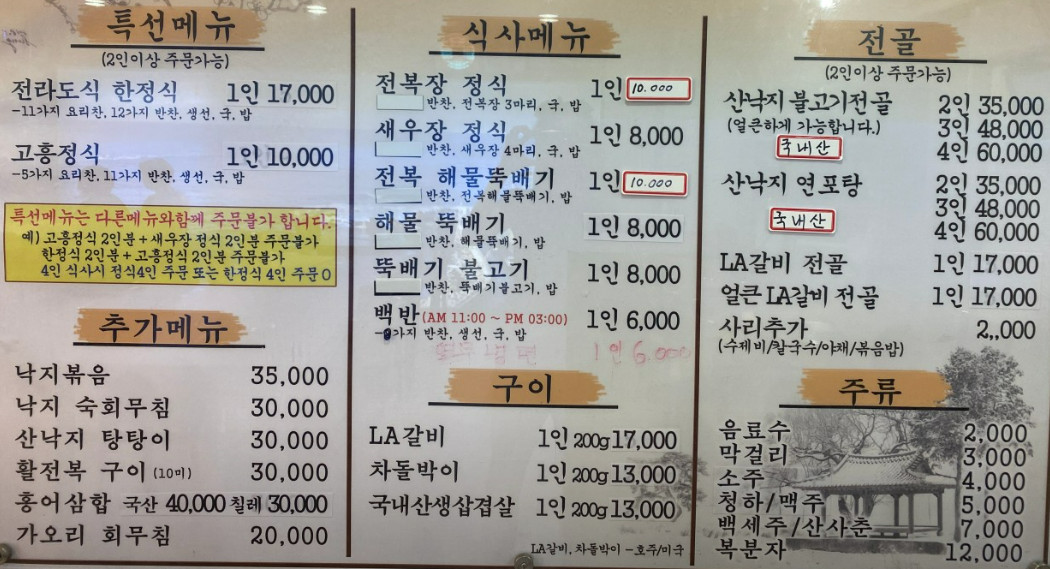 특선메뉴
(2인이상 주문가능)
전라도식 한정식 1인 17,000
-11가지 요리찬, 12가지 반찬, 생선, 국, 밥
고흥정식 1인 10,000
-5가지 요리찬, 11가지 반찬, 생선, 국, 밥
특선메뉴는 다른메뉴와함께 주문불가 합니다.
예) 고흥정식 2인분 + 새우장 정식 2인분 주문불가
한정식 2인분 + 고흥정식 2인분 주문불가
4인 식사시 정식4인 주문 또는 한정식 4인 주문 O
추가메뉴
낙지볶음 35,000
낙지 숙회무침 30,000
산낙지 탕탕이 30,000
활전복 구이 (10미) 30,000
홍어삼합 국산 40,000 칠레 30,000
가오리 회무침 20,000
식사메뉴
전복장 정식 1인 10.000
반찬, 전복장 3마리, 국, 밥
새우장 정식 1인 8,000
반찬, 새우장 4마리, 국, 밥
전복 해물뚝배기 1인 10.000
반찬, 전복해물뚝배기, 밥
해물 뚝배기 1인 8,000
반찬, 해물뚝배기, 밥
뚝배기 불고기 1인 8,000
반찬, 뚝배기불고기, 밥
백반 (AM 11:00 ~ PM 03:00) 1인 6,000
가지 반찬, 생선, 국, 밥
냉면 1인 6.000
구이
LA갈비 1인 200g 17,000
차돌박이 1인 200g 13,000
국내산생삼겹살 1인 200g 13,000
LA갈비, 차돌박이 -호주/미국
전골
(2인이상 주문가능)
산낙지 불고기전골 2인 35,000
(얼큰하게 가능합니다.) 3인 48,000
국내산 4인 60,000
산낙지 연포탕 2인 35,000
3인 48,000
국내산 4인 60,000
LA갈비 전골 1인 17,000
얼큰 LA갈비 전골 1인 17,000
사리추가 2,,000
(수제비/칼국수/야채/볶음밥)
주류
음료수 2,000
막걸리 3,000
소주 4,000
청하/맥주 5,000
백세주/산사춘 7,000
복분자 12,000